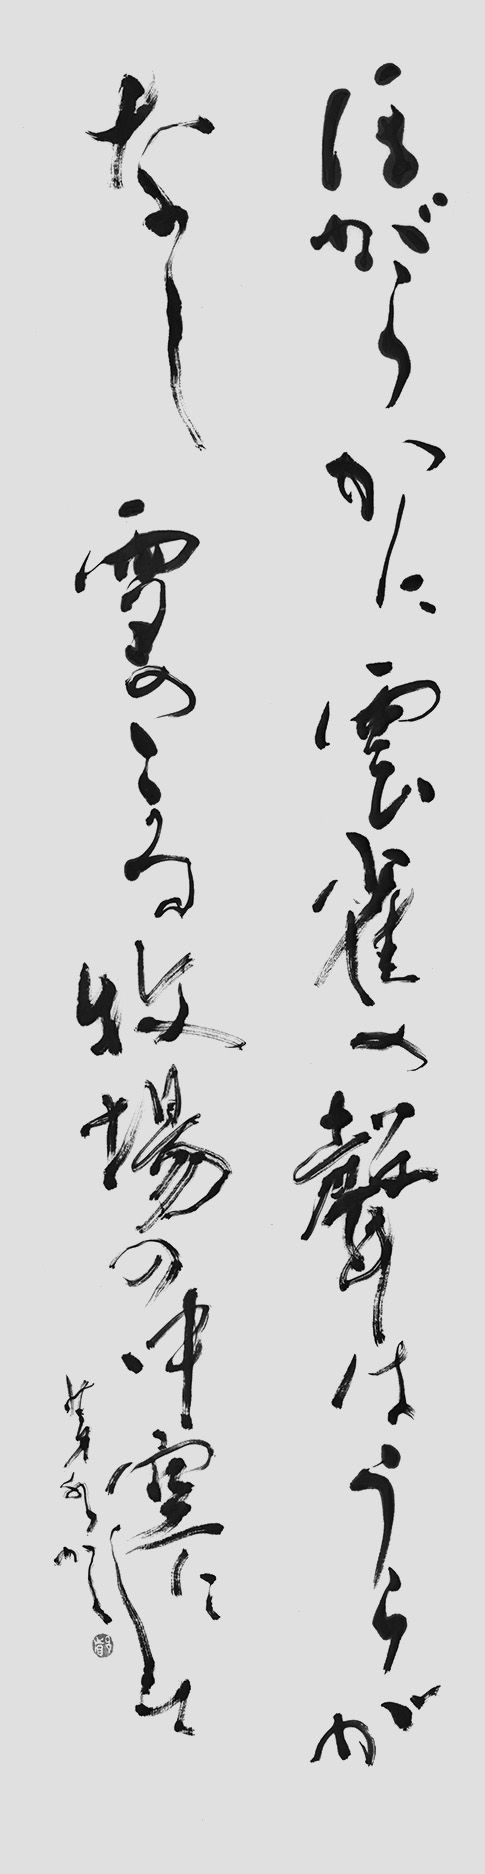 ほがらかに雲雀の聲はうらが
なし雪のこる牧場の中空にして